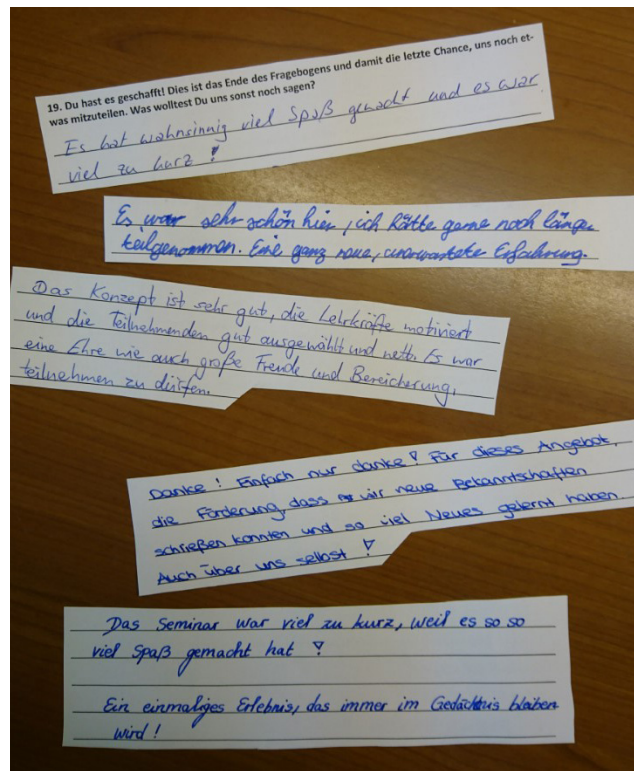 19. Du hast es geschafft! Dies ist das Ende des Fragebogens und damit die letzte Chance, uns noch et-
was mitzuteilen. Was wolltest Du uns sonst noch sagen?
Es hat wahnsinnig viel Spaß gemacht und es war
viel zu kurz!
Es war sehr schön hier, ich hätte gerne noch länger
teilgenommen. Eine ganz neue, unerwartete Erfahrung.
Das Konzept ist sehr gut, die Lehrkräfte motiviert
und die Teilnehmenden gut ausgewählt und nett. Es war
eine Ehre wie auch große Freude und Bereicherung,
teilnehmen zu dürfen.
Danke! Einfach nur danke! Für dieses Angebot,
die Förderung, dass wir neue Bekanntschaften
schließen konnten und so viel Neues gelernt haben.
Auch über uns selbst!
Das Seminar war viel zu kurz, weil es so so
viel Spaß gemacht hat!
Ein einmaliges Erlebnis, das immer im Gedächtnis bleiben
wird!